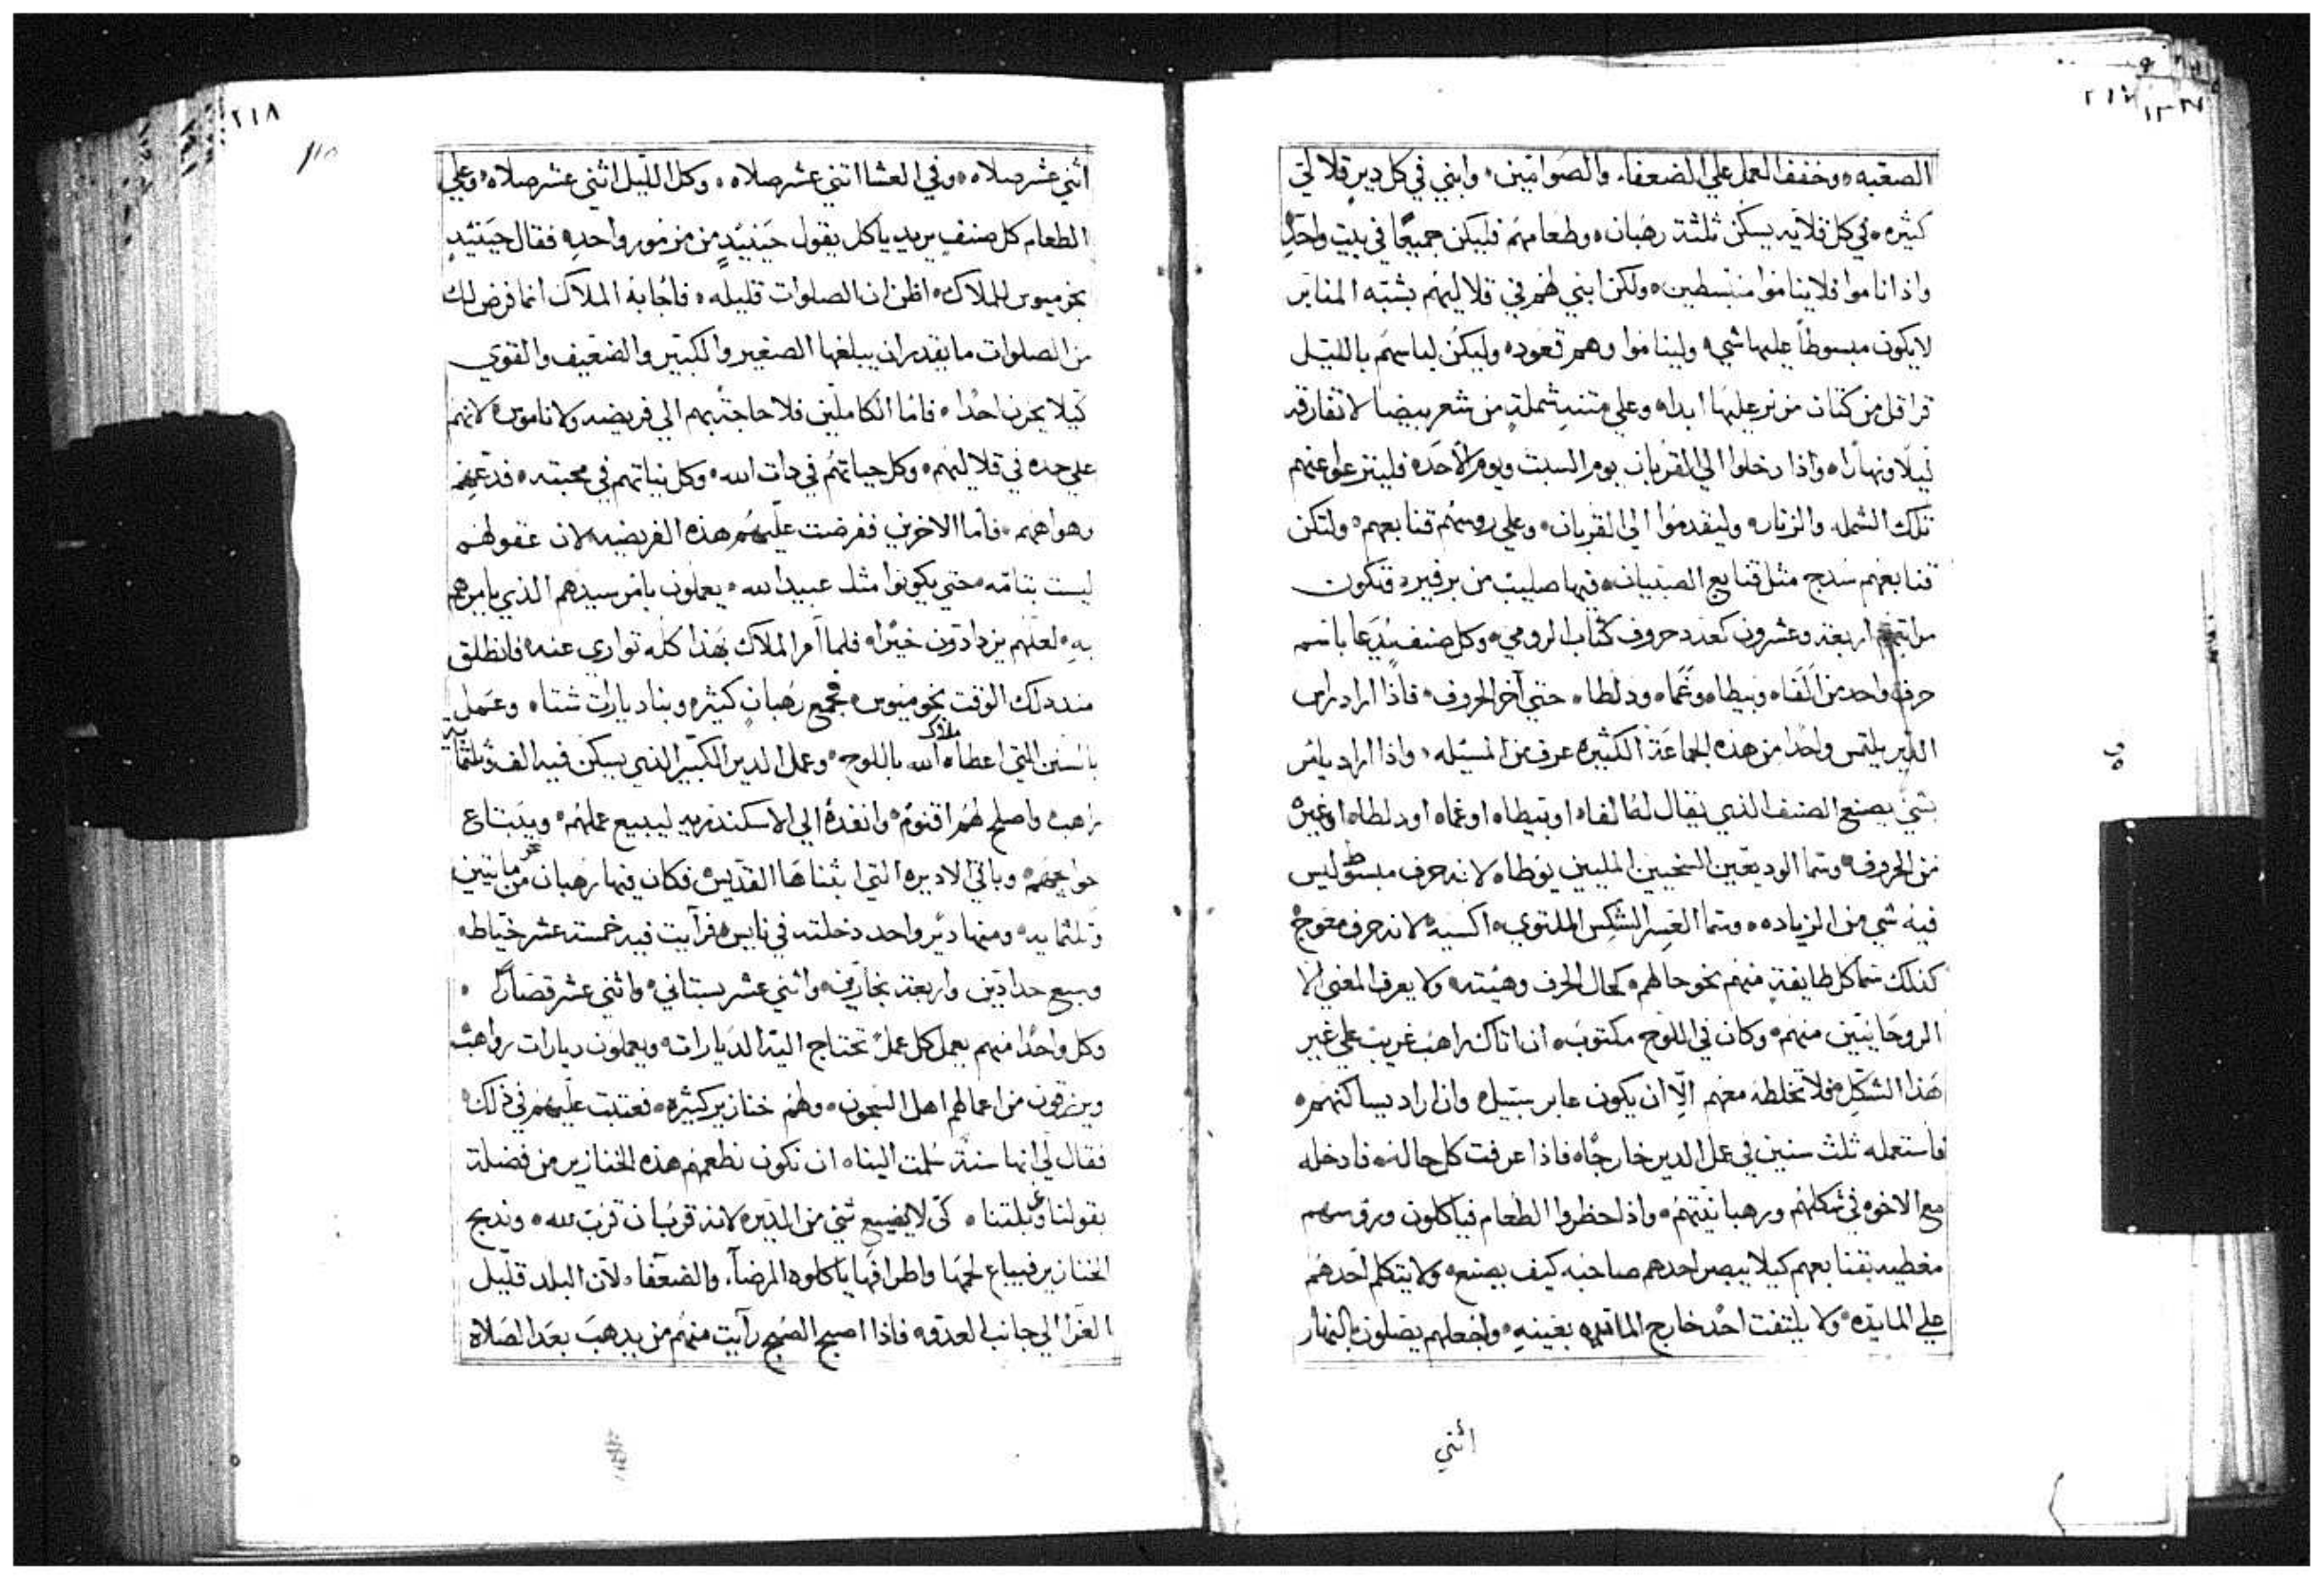 ٢١٧
الصعبه ٥ وخفف العمل علي الضعفاء والصوامين ٥ وابني في كل دير قلالي
كثيره ٥ في كل قلايه يسكن ثلثة رهبان ٥ وطعامهم فليكن جميعًا في بيت واحد
واذا ناموا فلا يناموا منبسطين ٥ ولكن ابني لهم في قلاليهم بشبه المنابر
لا يكون مبسوطاً عليها شي ٥ وليناموا وهم قعود ٥ وليكن لباسهم بالليل
قراقل من كتان من نر عليها ابدا ٥ وعلي متنيه شملة من شعر بيضا لا تفارقه
ليلا ونهارا ٥ واذا دخلوا الي القربان يوم السبت ويوم الاحد ٥ فلينزعوا عنهم
تلك الشمله والزنار ٥ وليقدموا الي القربان ٥ وعلي روسهم قنابعهم ٥ ولتكن
قنابعهم سدج مثل قنابع الصبيان ٥ فيها صليب من برفير ٥ فتكون
مراتبهم اربعة وعشرون كعدد حروف كتاب الرومي ٥ وكل صنف يدعا باسم
حرف واحد من الفا ٥ وبيطا ٥ وغما ٥ ودلطا ٥ حتي آخر الحروف ٥ فاذا اراد راس
الدير يلتمس واحدا من هذه الجماعة الكثيره عرف من المسئله ٥ واذا اراد يامر
بشي يصنع الصنف الذي يقال له الفا ٥ او بيطا ٥ او غما ٥ او دلطا ٥ او غيره
من الحروف ٥ وسما الوديعين السخيين المليين يوطا ٥ لانه حرف مبسوط ليس
فيه شي من الزياده ٥ وسما العسر الشكس الملتوي ٥ اكسي ٥ لانه حرف معوج
كذلك سما كل طايفة منهم نحو حالهم ٥ كحال الحرف وهيئته ٥ ولا يعرف المعني الا
الروحانيين منهم ٥ وكان في اللوح مكتوب ٥ ان اتاك راهب غريب علي غير
هذا الشكل فلا تخلطه معهم الا ان يكون عابر سبيل ٥ وان اراد يساكنهم ٥
فاستعمله ثلث سنين في عمل الدير خارجًا ٥ فاذا عرفت كل حاله ٥ فادخله
مع الاخوه في شكلهم ورهبانيتهم ٥ واذا حظروا الطعام فياكلون وروسهم
مغطيه بقنابعهم كيلا يبصر احدهم صاحبه كيف يصنع ٥ ولا يتكلم احدهم
علي المايده ٥ ولا يلتفت احد خارج المايده بعينه ٥ واجعلهم يصلون بالنهار
اثني
٢١٨
اثني عشر صلاه ٥ وفي العشا اثني عشر صلاه ٥ وكل الليل اثني عشر صلاه ٥ وعلي
الطعام كل صنف يريد ياكل يقول حينئذ من مزمور واحد ٥ فقال حينئذ
بخوميوس للملاك ٥ اظن ان الصلوات قليله ٥ فاجابه الملاك انما فرض لك
من الصلوات ما يقدر ان يبلغها الصغير والكبير والضعيف والقوي
كيلا يحزن احدا ٥ فاما الكاملين فلا حاجة بهم الي فريضه ولا ناموس ٥ لانهم
علي حده في قلاليهم ٥ وكل حياتهم في ذات الله ٥ وكل نياتهم في محبته ٥
وهواهم ٥ فاما الاخرين ففرضت عليهم هذه الفريضه لان عقولهم
ليست بتامه ٥ حتي يكونوا مثل عبيد الله ٥ يعملون بامر سيدهم الذي يامرهم
به ٥ لعلهم يزدادون خيرا ٥ فلما امر الملاك بهذا كله تواري عنه ٥ فانطلق
منذ ذلك الوقت بخوميوس ٥ فجمع رهبان كثيره وبنا ديارات شتا ٥ وعمل
بالسنن التي اعطاه ملاك الله باللوح ٥ وعمل الدير الكبير الذي يسكن فيه الف وثلثمايه
راهب ٥ واصلح لهم اقنوم ٥ وانفذه الي الاسكندريه ليبيع عملهم ٥ ويبتاع
حوايجهم ٥ وباقي الاديره التي ابتناها القديس ٥ فكان فيها رهبان من مايتين
وثلثمايه ٥ ومنها دير واحد دخلته في نايس ٥ فرايت فيه خمسة عشر خياطه
وسبع حدادين واربعة نجارين ٥ واثني عشر بستاني ٥ واثني عشر قصارا ٥
وكل واحدا منهم يعمل كل عمل تحتاج اليه الديارات ٥ ويعملون ديارات رواهب
ويرزقون من اعمالهم اهل السجون ٥ ولهم خنازير كثيره ٥ فعتبت عليهم في ذلك ٥
فقال لي انها سنة سلمت الينا ٥ ان نكون نطعمهم هذه الخنازير من فضلة
بقولنا وغلتنا ٥ كي لا يضيع شي من الدير ٥ لانه قربان قرب لله ٥ وندبح
الخنازير فيباع لحمها واطرافها ياكلوه المرضاء والضعفا ٥ لان البلد قليل
القرا الي جانب العدو ٥ فاذا اصبح الصبح رايت منهم من يدهب بعد الصلاه